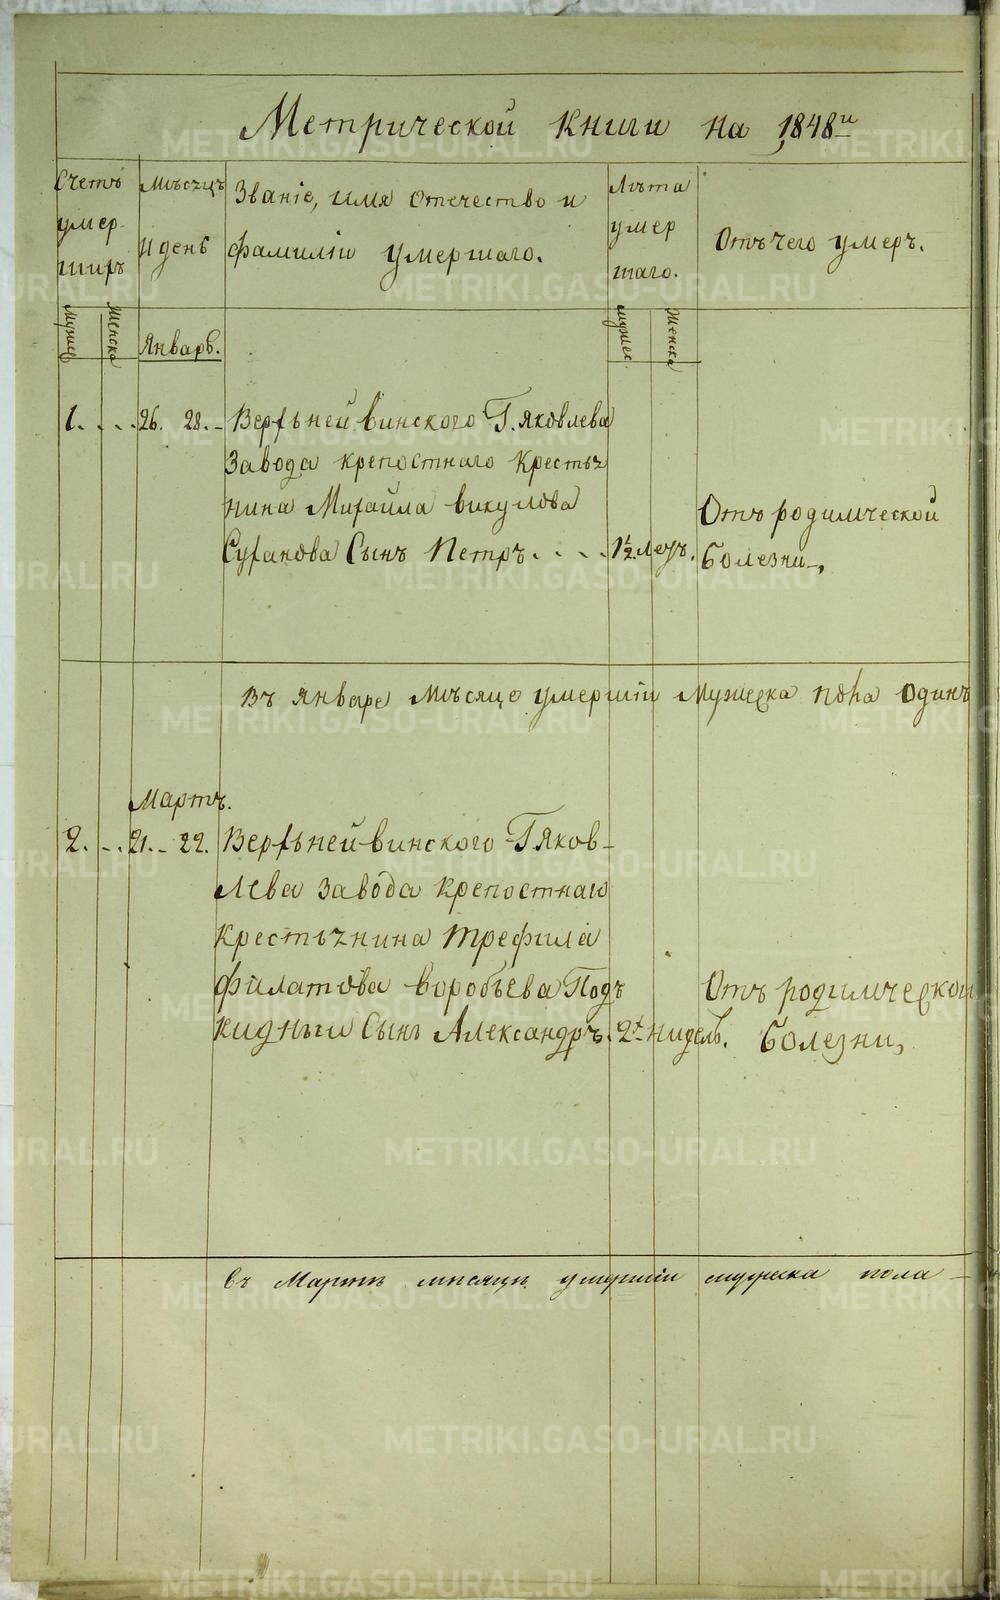 Метрической книги на 1848й
Счетъ умерширъ
Мѣсяцъ и день
Званіе, имя отечество и фамиліи умершаго.
Лѣта умершаго.
Отъ чего умеръ.
Мужес Женска
Январ.
мужес. Женска
1. . . . 26. 28. - Верхьнейвинского Г. яковлева
Завода крепостнаго Кресть
нина Михайла викулова
Суханова Сынъ Петръ. . . .
Отъ родимческой
Болезни-,
въ январе Мѣсяце умершіи Мужеска пола один
Мартъ.
2. - . 21. - 22. Верхьнейвинского Г Яков-
лева Завода крепостнаго
Крестьянина Трефила
Филатова воробьева Подъ
кидныи Сынъ Александръ. 2х нидель.
Отъ родимческой
Болезни,
въ Мартѣ мѣсяцѣ умершіи мужеска пола -
METRIKI.GASO-URAL.RU